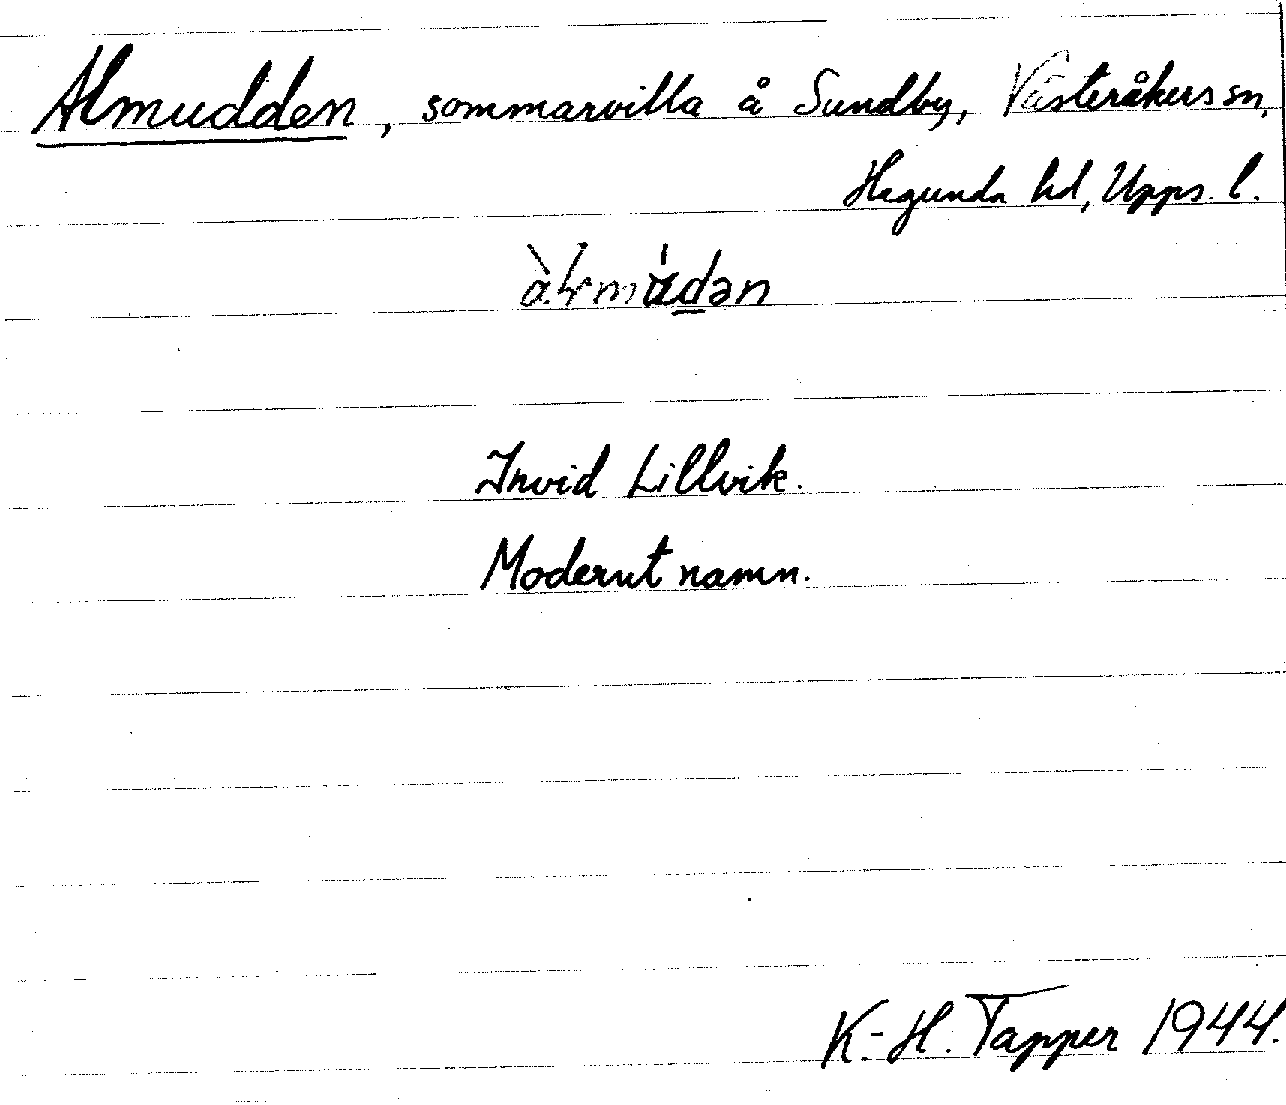 Almudden, sommarvilla å Sundby, Västeråkers sn,
Hagunda hd, Upps. l.
Invid Lillvik.
Modernt namn.
K.-H. Tapper 1944.